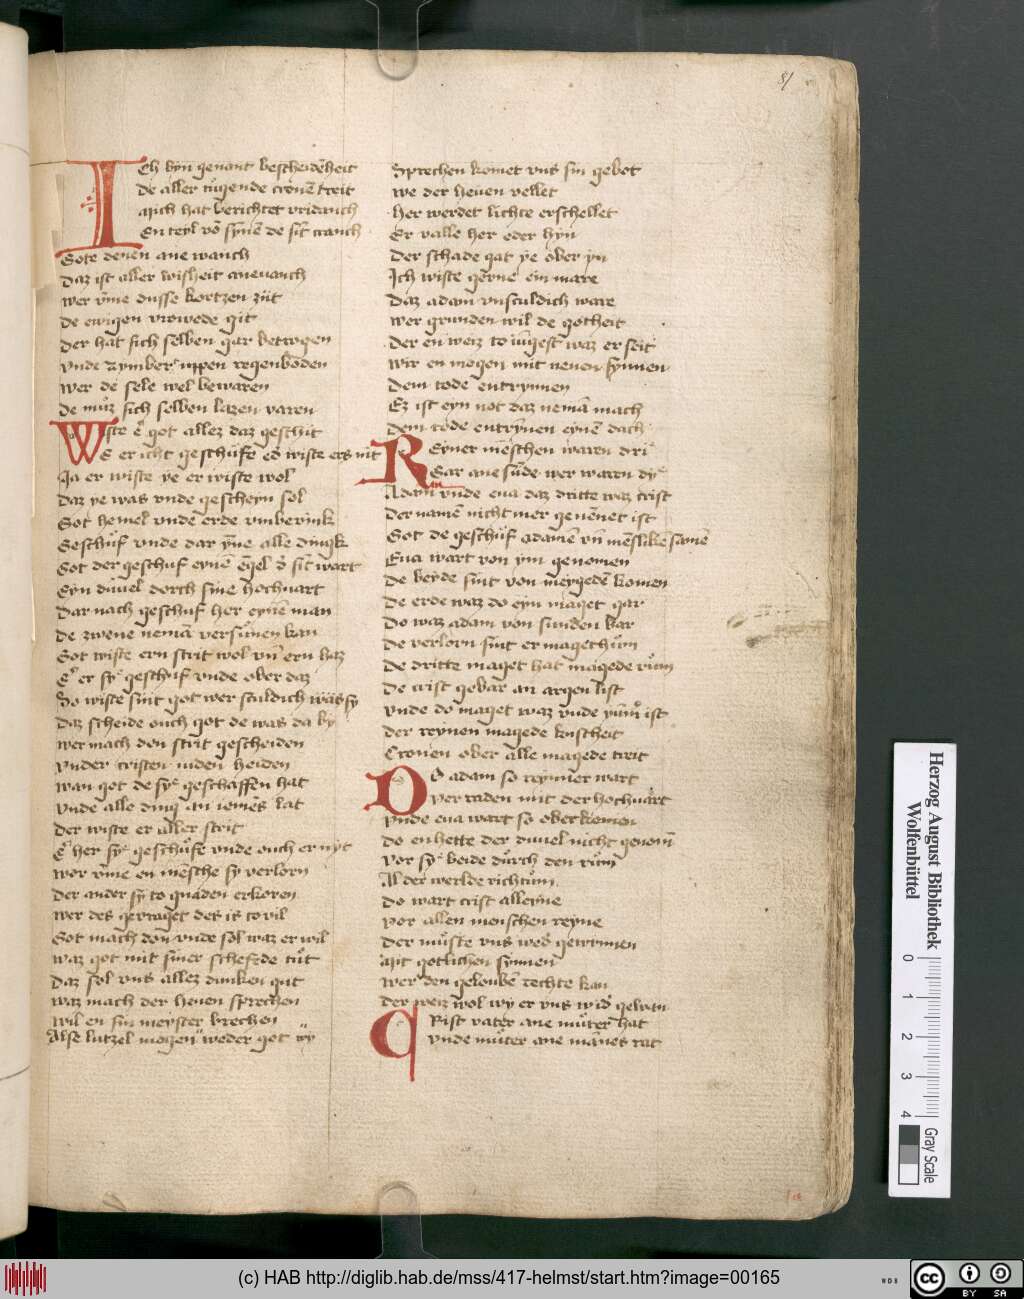 81
Ich byn genant bescheidēheit
De aller tugende cronē treit
Mich hat berichtet vridanch
En teyl vō synē de sīt cranch
Gote denen ane wanch
Daz ist aller wisheit anevanch
Wer vme dusse kortzen zůt
De ewigen vrowede git
Der hat sich selben gar betrogen
Vnde zymbert uppen regenboden
Wer de sele wel bewaren
De můz sich selben lazen varen
Wiste er got allez daz geschůt
E er icht geschůfe ed wiste ers nit
Ja er wiste ye er wiste wol
Daz ye was vnde gescheyn sol
Got hemel vnde erde vmberink
Geschůf vnde dar yne alle dingk
Got der geschuf eynē engel d sīt wart
Eyn duvel dorch sine hochvart
Dar nach geschuf her eynē man
De zwene nemā versůnen kan
Got wiste ern strit wol vn ern haz
Er er sye geschuf vnde ober daz
So wiste sint got wer sculdich was sy
Daz scheide ouch got de was da by
Wer mach den strit gescheiden
Vnder cristen iuden heiden
Wan got de sye geschaffen hat
Vnde alle ding an iemēs rat
Der wiste er aller strit
Er her sye geschůfe vnde ouch er nyt
Wor vme en mēsche sy verlorn
Der ander sy to gnaden erkoren
Wer des gevraget des is to vil
Got mach don vnde sol waz er wil
Waz got mit siner schefede tůt
Daz sol vns allez dunken gut
Waz mach der heuen sprechen
Wil en sin meyster brechen
Alse lutzel mogen weder got wy
Sprechen komet vns sin gebot
We der heuen vellet
Her werdet lichte erschellet
Er valle her oder hyn
Der schade gat ye ober yn
Ich wiste gerne ein mare
Daz adam vnsculdich ware
Wer grunden wil de gotheit
Der en weiz to iūgest waz er seit
Wir en mogen mit neuen synnen
Dem tode entrynnen
Ez ist eyn not daz nemā mach
Dem tode entrynen eynē dach
Reyner mēschen waren dri
Gar ane sūde wer waren dye
Adam vnde eua daz dritte waz crist
Der namē nicht mer genēnet ist
Got de geschůf adamē vn mēslike samē
Eua wart von ym genomen
De beyde sint von meygedē komen
De erde waz do eyn maget gar
Do waz adam von sunden bar
De verlorn sint er magethům
De dritte maget hat magede rům
De crist gebar an argen list
Vnde do maget waz vnde yům ist
Der reynen magede kuscheit
Cronen ober alle magede treit
Do adam so reynner wart
Verraden mit der hochuart
Vnde eua wart so oberkomen
Do en hette der duuel nicht genom
Vor sye beide durch den rům
Al der werlde richtům
Do wart crist alleyne
vor allen menschen reyne
Der muste vns wed gewynnen
Mit gotlichen synnen
Wer den geloubē rechte kan
Der weiz wol wy er vns wid gewan
Crist vater ane můter hat
Vnde muter ane mānes rat
Herzog August Bibliothek
Wolfenbüttel
0 1 2 3 4
Gray Scale
(c) HAB http://diglib.hab.de/mss/417-helmst/start.htm?image=00165
WDB
cc
BY SA